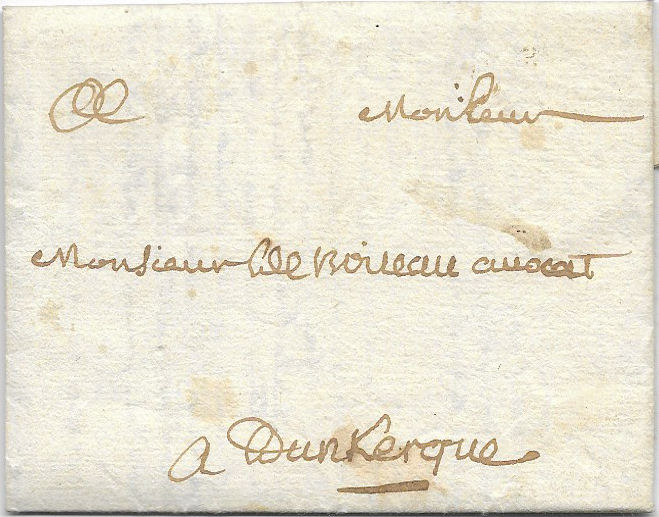 Monsieur
Monsieur Boileau avocat
a Dunkerque